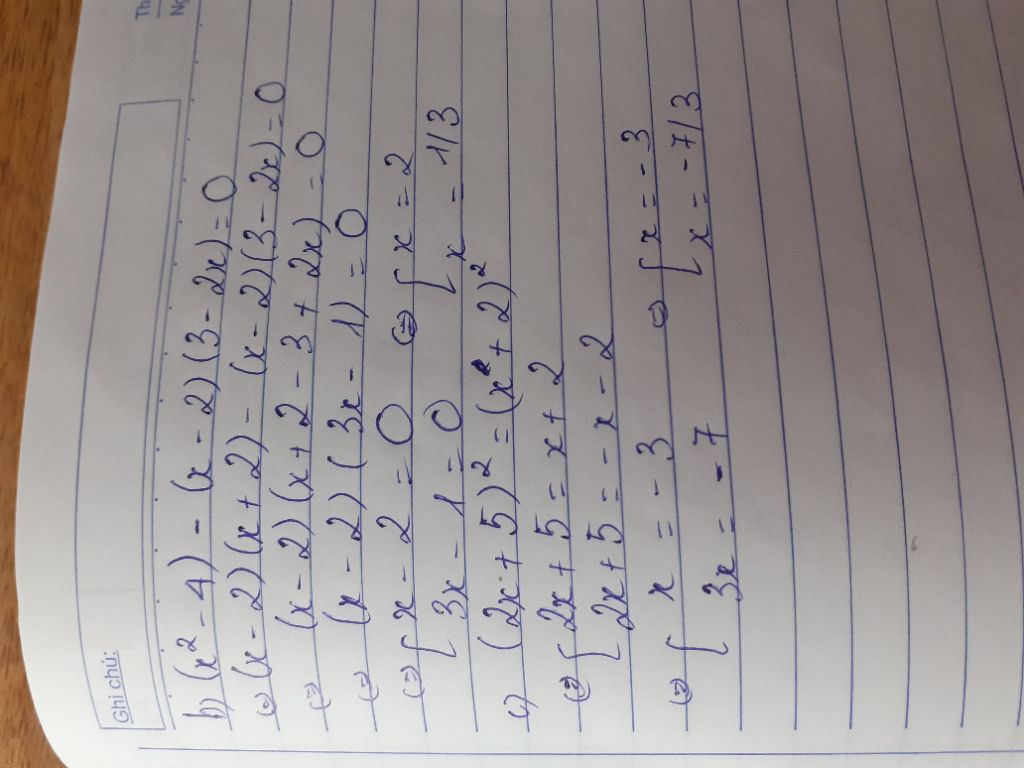 Th
Ng
Ghi chú:
b) (x² - 4) - (x - 2)(3 - 2x) = 0
(=) (x - 2)(x + 2) - (x - 2)(3 - 2x) = 0
(=) (x - 2)(x + 2 - 3 + 2x) = 0
(=) (x - 2)(3x - 1) = 0
(=) [ x - 2 = 0 (=) [ x = 2
3x - 1 = 0 x = 1/3
c) (2x + 5)² = (x + 2)²
(=) [ 2x + 5 = x + 2
2x + 5 = - x - 2
(=) [ x = - 3 (=) [ x = - 3
3x = - 7 x = - 7/3